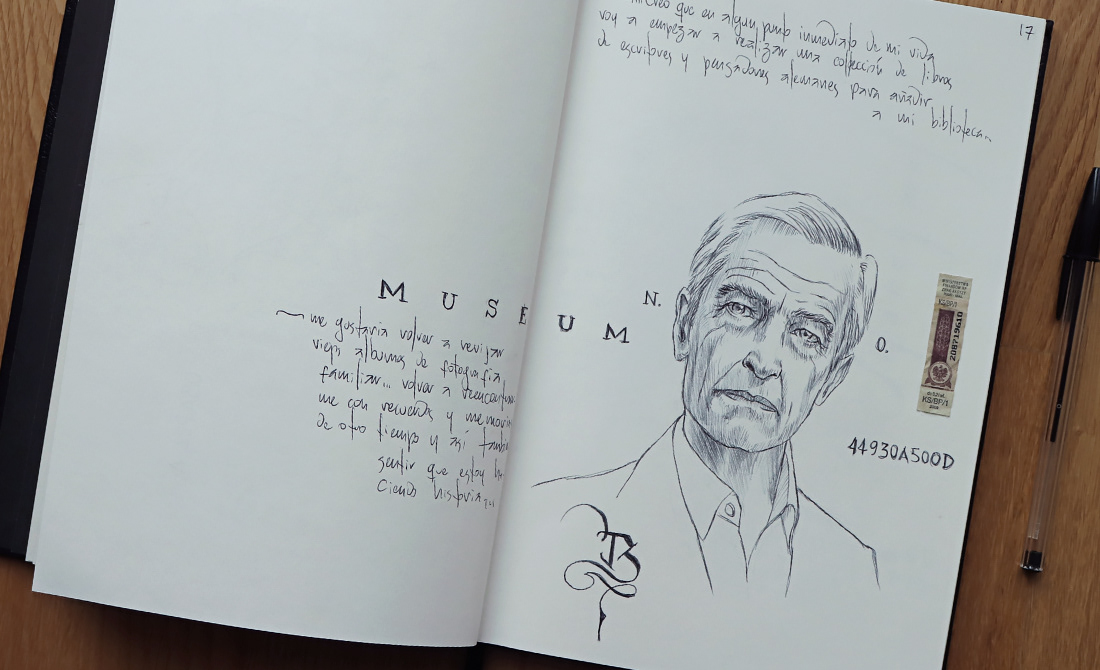 17
creo que en algun punto inmediato de mi vida
voy a empezar a realizar una collección de libros
de escritores y pensadores alemanes para añadir
a mi biblioteca...
MUSEUM
N.
O.
me gustaria volver a revisar
viejos albumes de fotografia
familiar... volver a reencontrar
me con recuerdos y memorias
de otro tiempo y asi tambien
sentir que estoy ha
ciendo historia...
208719610
KS/BP/1
44930A500D
B